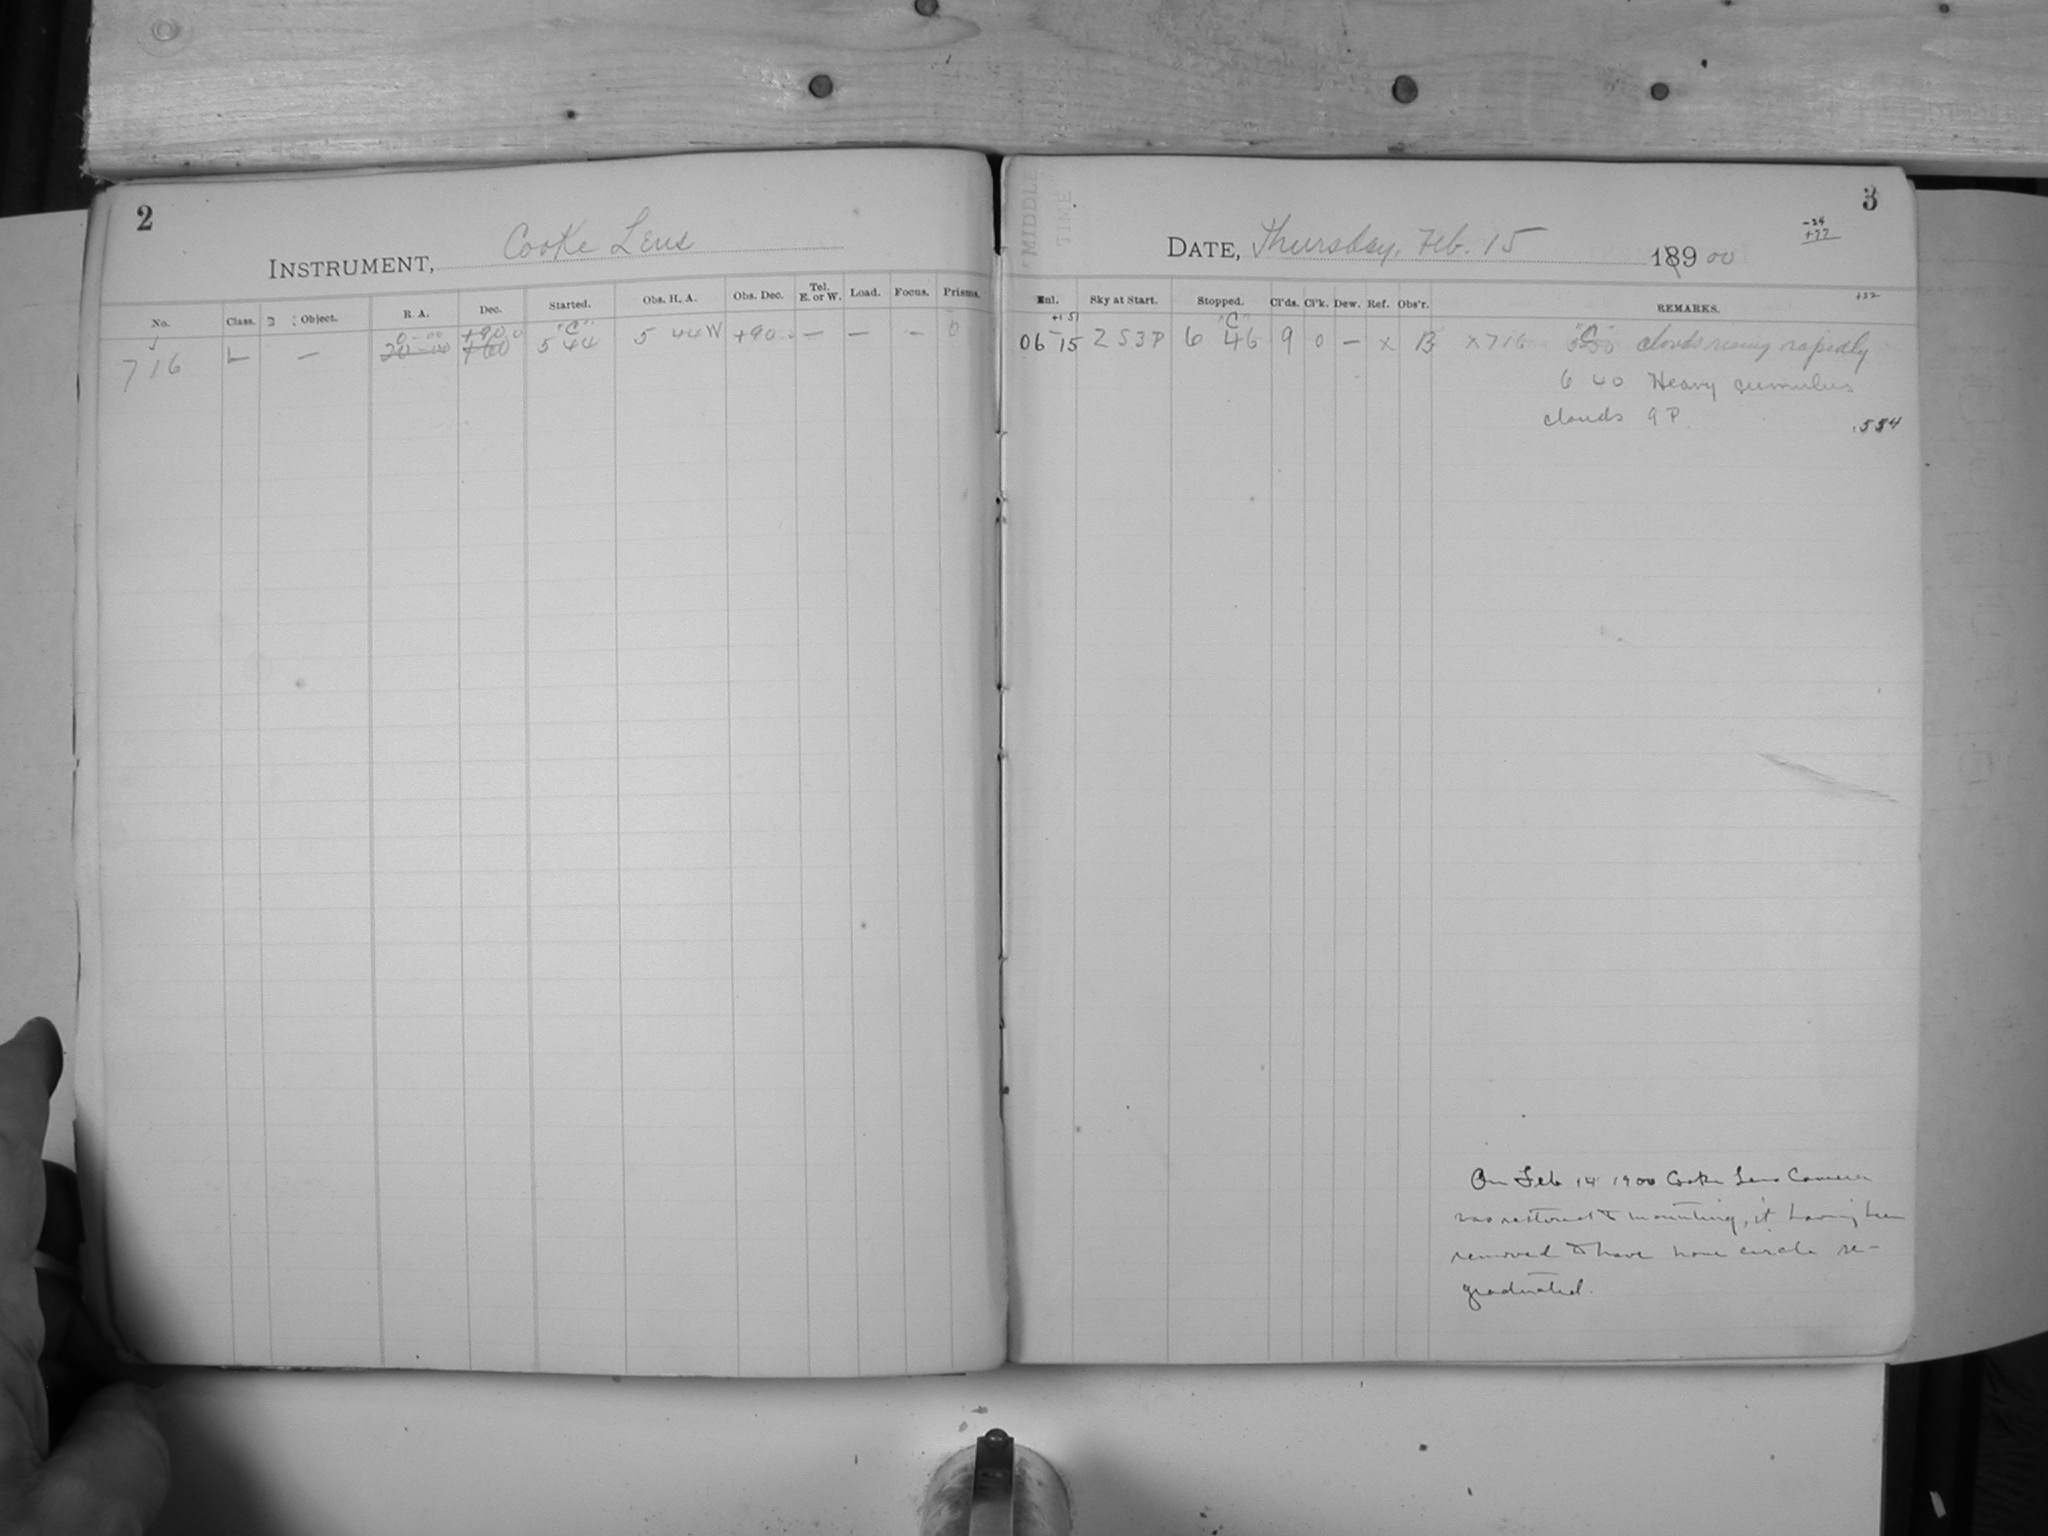 2
INSTRUMENT, Cooke Lens
No. Class. Object. R. A. Dec. Started. Obs. H. A. Obs. Dec. Tel. E. or W. Load. Focus. Prisms.
0 00 +90 0 "C"
716 L — 20 +60 5 44 5 44 W +90 — — — 0
MIDDLE
TIME
3
-24
+77
DATE, Thursday, Feb. 15 189 00
+52
Enl. Sky at Start. Stopped. Cl'ds. Cl'k. Dew. Ref. Obs'r. REMARKS.
+1 51 "C" "C"
06 15 2 S3P 6 46 9 0 — x B x 716 clouds rising rapidly
6 40 Heavy cumulus
clouds 9 P.
.554
On Feb 14 1900 Cooke Lens Camera
was restored to mounting, it having been
removed to have hour circle re-
graduated.